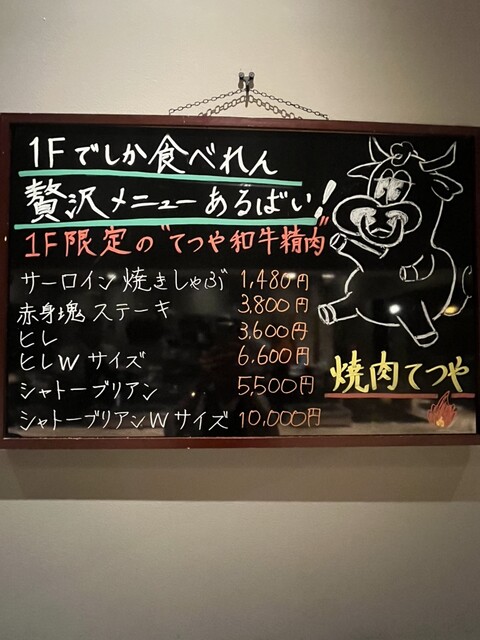 1Fでしか食べれん
贅沢メニューあるばい!
1F限定の"てつや和牛精肉"
サーロイン焼きしゃぶ 1,480円
赤身塊ステーキ 3,800円
ヒレ 3,600円
ヒレWサイズ 6,600円
シャトーブリアン 5,500円
シャトーブリアンWサイズ 10,000円
焼肉てつや